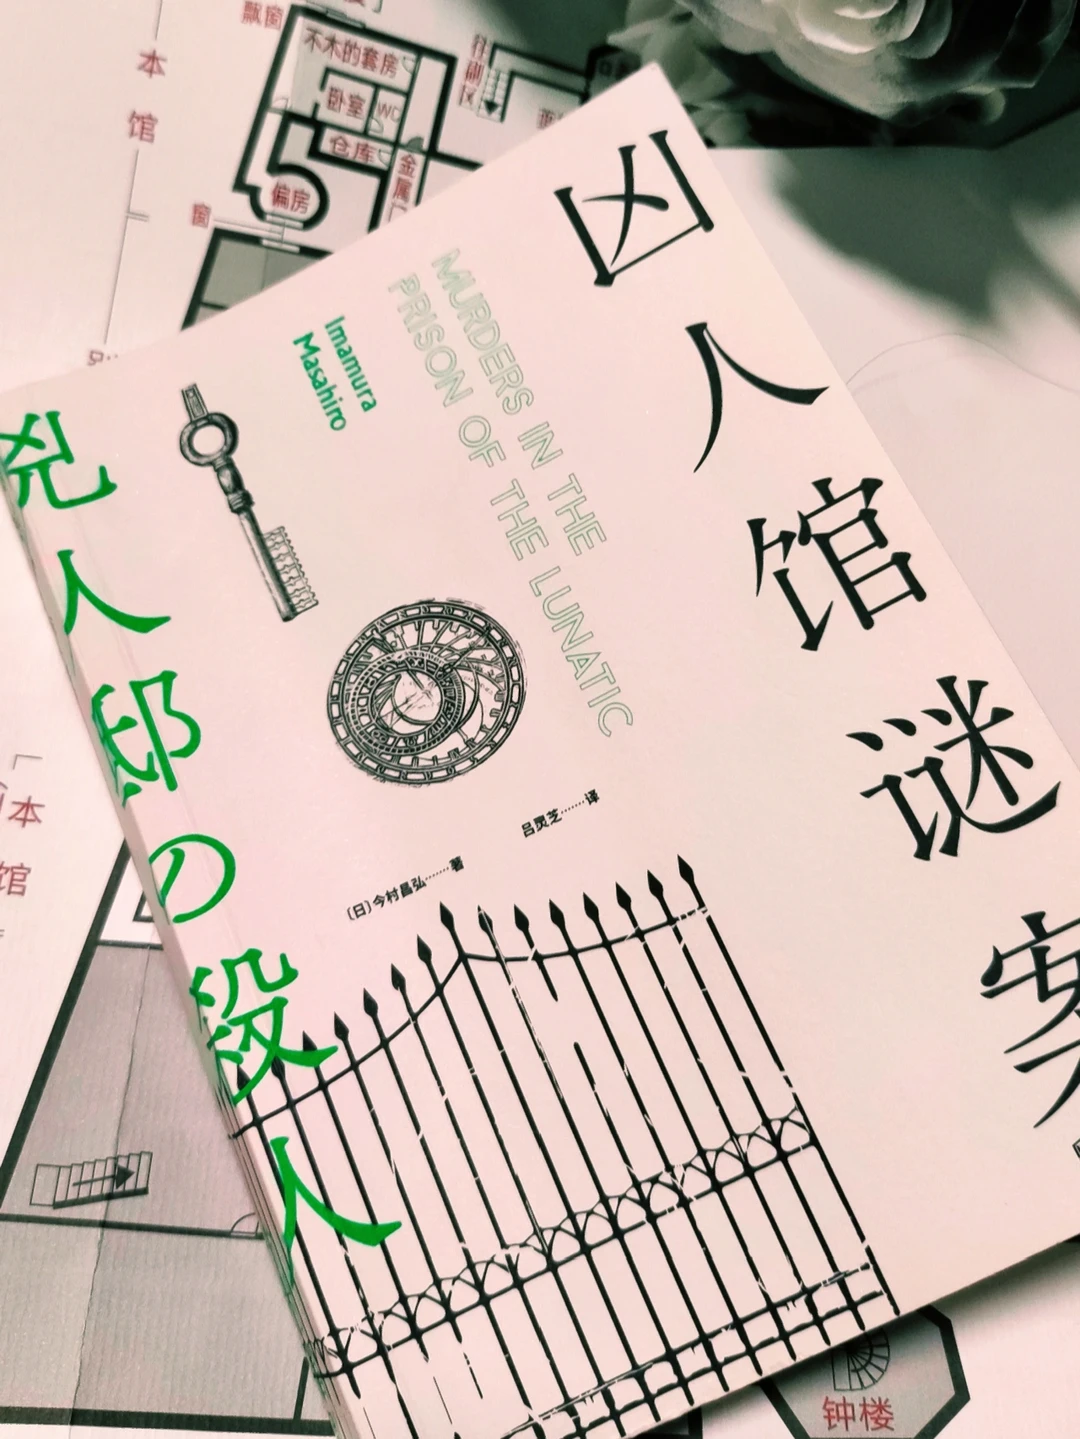 飘窗
不木的套房
卧室
WC
仓库
金属门
偏房
窗
往副区
本馆
凶人馆谜案
MURDERS IN THE
PRISON OF THE LUNATIC
Imamura
Masahiro
兇人邸の殺人
吕灵芝……译
〔日〕今村昌弘……著
本馆
钟楼